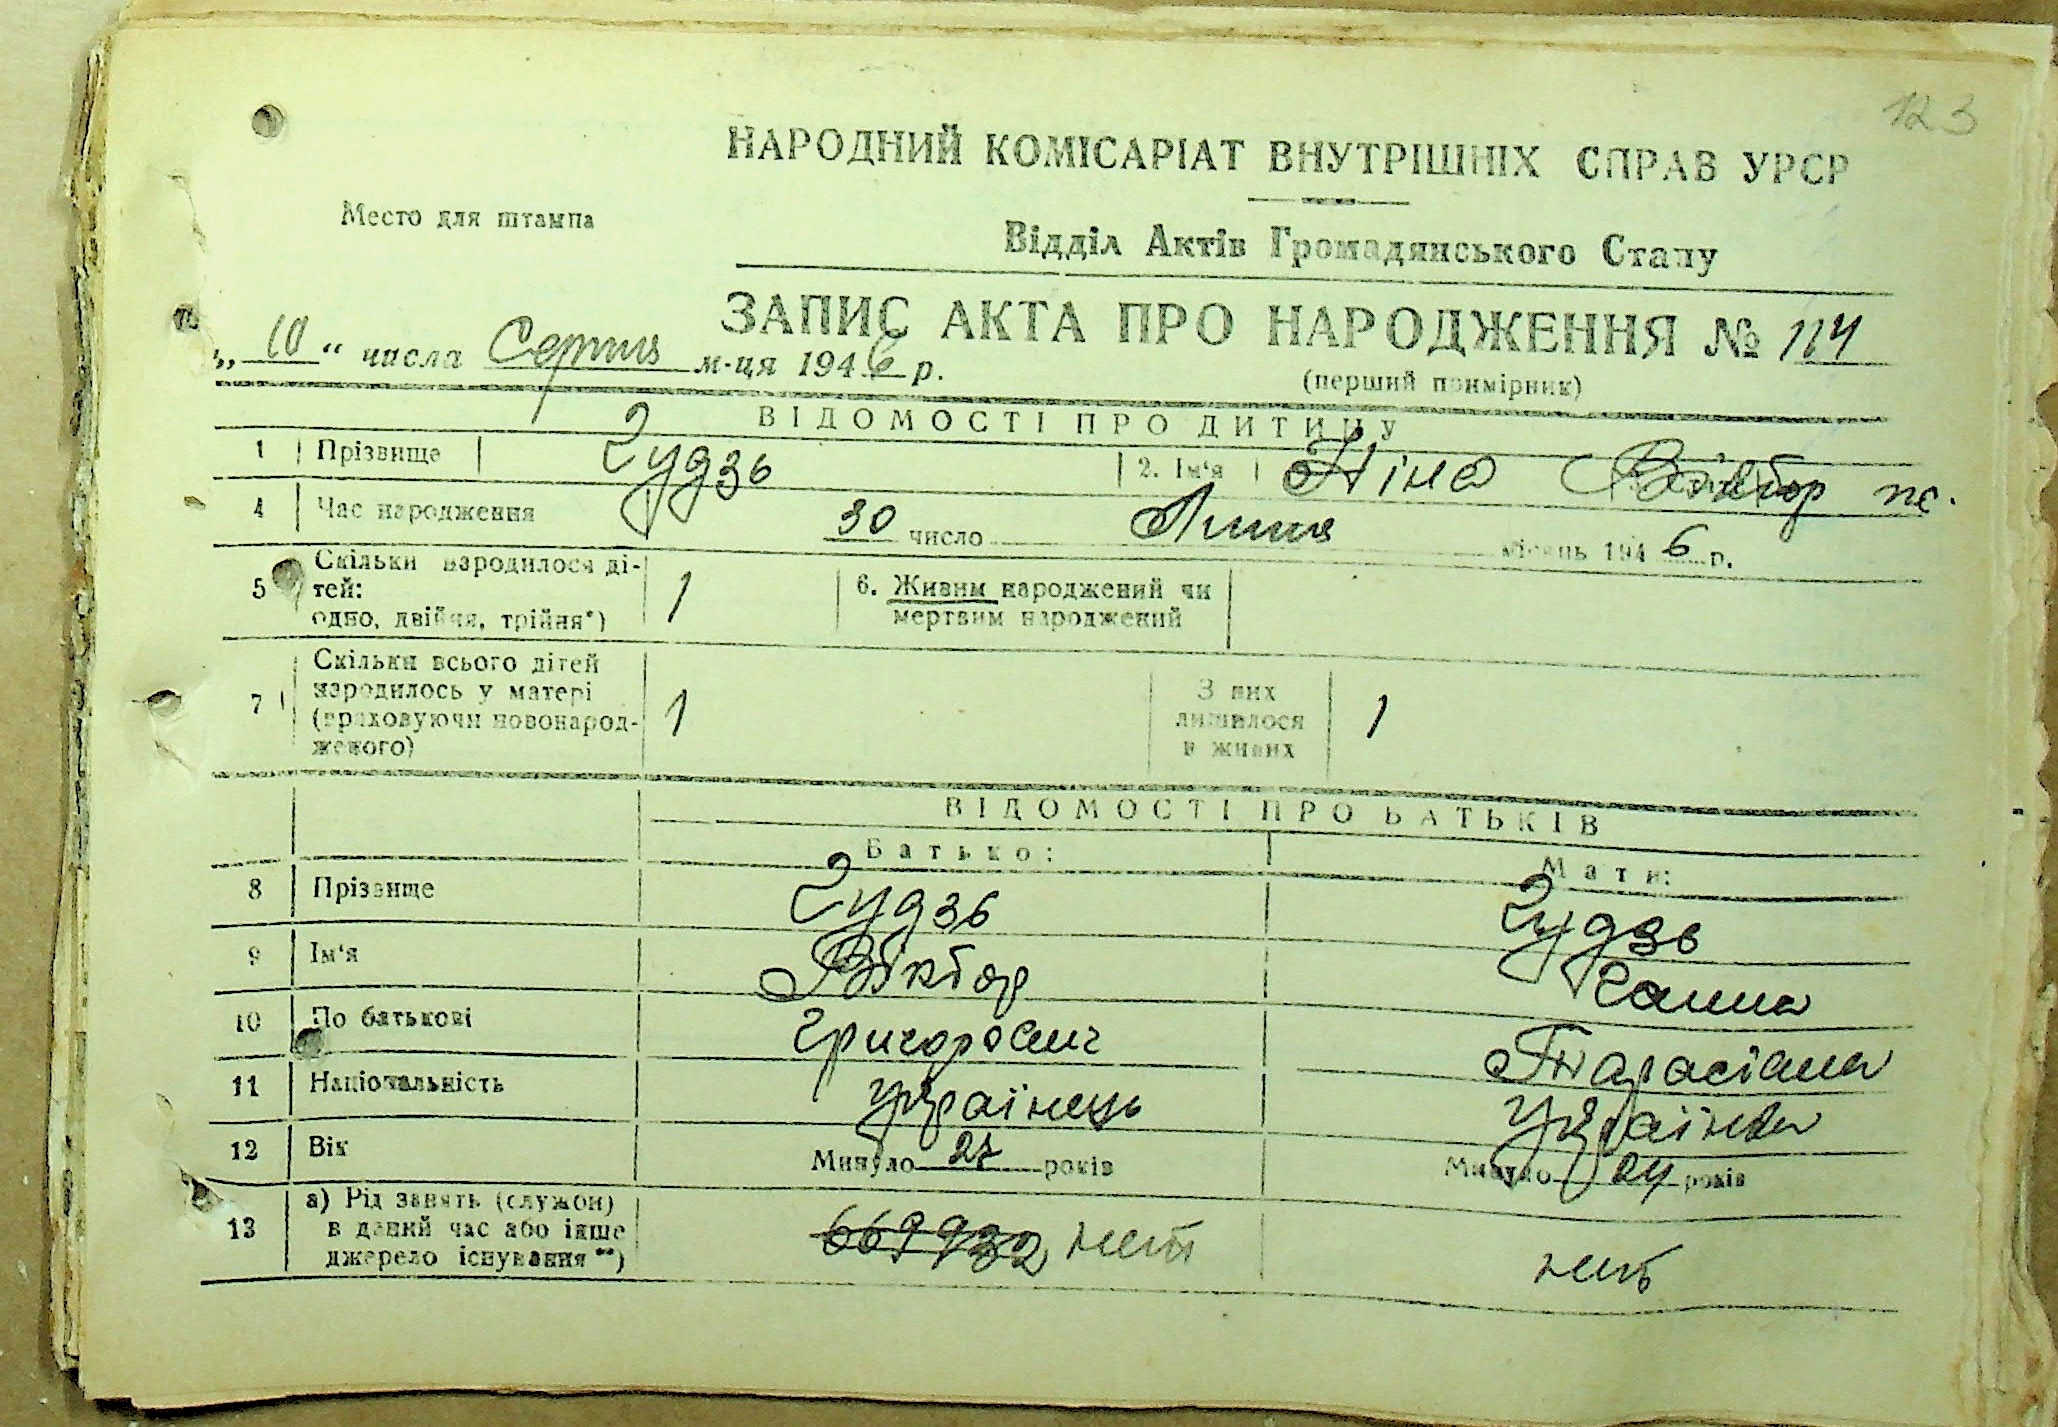 123
НАРОДНИЙ КОМІСАРІАТ ВНУТРІШНІХ СПРАВ УРСР
Место для штампа
Відділ Актів Громадянського Стану
ЗАПИС АКТА ПРО НАРОДЖЕННЯ № 114
„ 10 “ числа Серпня м-ця 1946 р.
(перший примірник)
ВІДОМОСТІ ПРО ДИТИНУ
1 Прізвище Гудзь 2. Ім'я Ніна Віктор
4 Час народження 30 число Липня місяць 1946 р.
5 Скільки народилося ді-
тей:
одно, двійня, трійня*) 1
6. Живим народжений чи
мертвим народжений
7 Скільки всього дітей
народилось у матері
(враховуючи новонарод-
женого) 1
З них
лишилося
в живих 1
ВІДОМОСТІ ПРО БАТЬКІВ
Батько: Мати:
8 Прізвище Гудзь Гудзь
9 Ім'я Віктор Ганна
10 По батькові Григорович
11 Національність Українець Українка
12 Вік Минуло 27 років Минуло 24 років
13 а) Рід занять (служби)
в даний час або інше
джерело існування**) 669932 нет нет